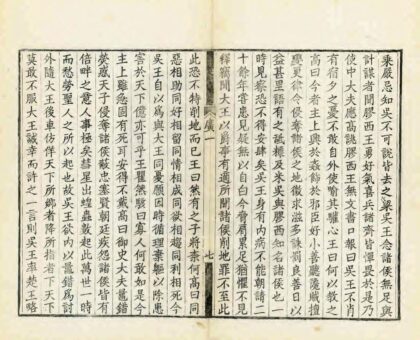 乘嚴忌知吳不可說皆去之梁吳王念諸侯無足與
計謀者聞膠西王勇好氣喜兵諸齊皆憚畏於是乃
使中大夫應高誂膠西王無文書口報曰吳王不肖
有宿夕之憂不敢自外使喻其驩心王曰何以教之
高曰今者主上興於姦飾於邪臣好小善聽讒賊擅
變更律令侵奪諸侯之地徵求滋多誅罰良善日以
益甚里語有之舐糠及米吳與膠西知名諸侯也一
時見察恐不得安肆矣吳王身有內病不能朝請二
十餘年嘗患見疑無以自白今脅肩累足猶懼不見
釋竊聞大王以爵事有適所聞諸侯削地罪不至此
七
此恐不特削地而已王曰然有之子將奈何高曰同
惡相助同好相留同情相成同欲相趨同利相死今
吳王自以為與大王同憂願因時循理棄軀以除患
害於天下億亦可乎王瞿然駭曰寡人何敢如是今
主上雖急固有死耳安得不戴高曰御史大夫鼂錯
熒惑天子侵奪諸侯蔽忠塞賢朝廷疾怨諸侯皆有
倍畔之意人事極矣彗星出蝗蟲數起此萬世一時
而愁勞聖人之所以起也故吳王欲內以鼂錯為討
外隨大王後車彷徉天下所鄉者降所指者下天下
莫敢不服大王誠幸而許之一言則吳王率楚王略